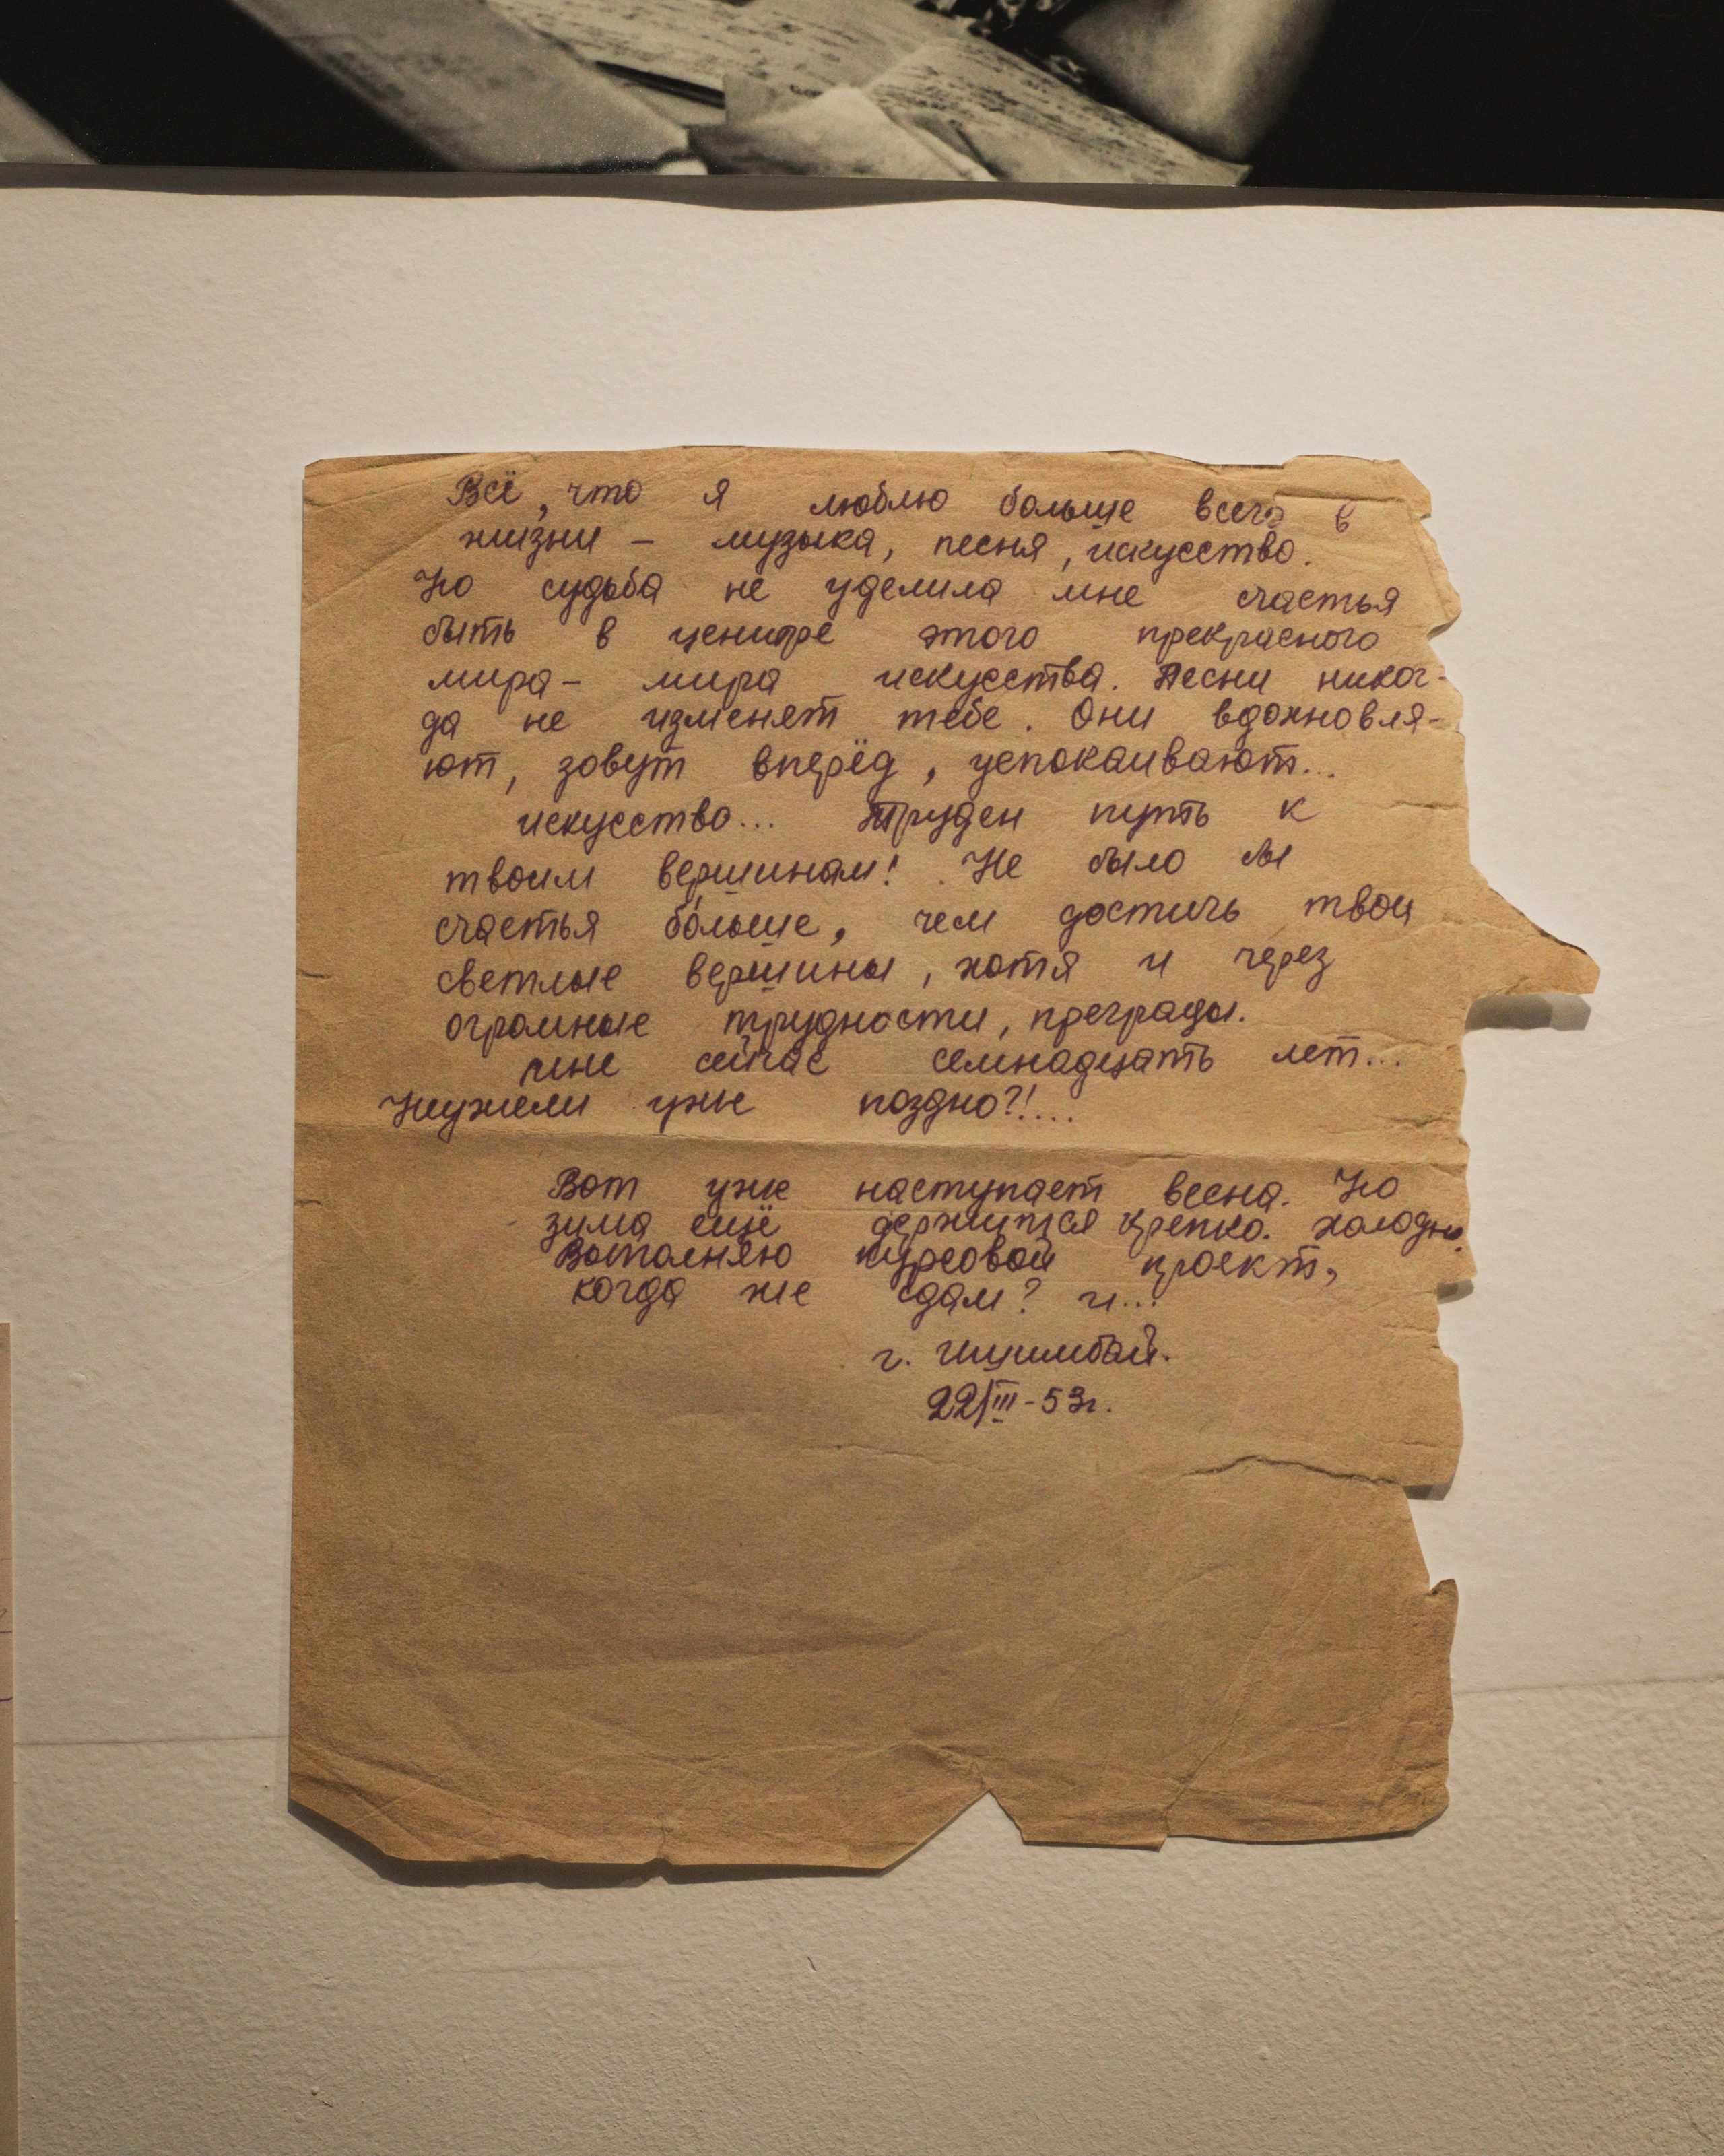 Всё, что я люблю больше всего в
жизни – музыка, песня, искусство.
Но судьба не уделила мне счастья
быть в центре этого прекрасного
мира – мира искусства. Песни никог-
да не изменят тебе. Они вдохновля-
ют, зовут вперёд, успокаивают...
искусство... Труден путь к
твоим вершинам! Не было бы
счастья больше, чем достичь твои
светлые вершины, хотя и через
огромные трудности, преграды.
мне сейчас семнадцать лет...
Неужели уже поздно?!...
Вот уже наступает весна. Но
зима ещё держится крепко. холодно.
Выполняю курсовой проект,
когда же сдам? и...
г. Ишимбай.
22/III-53г.